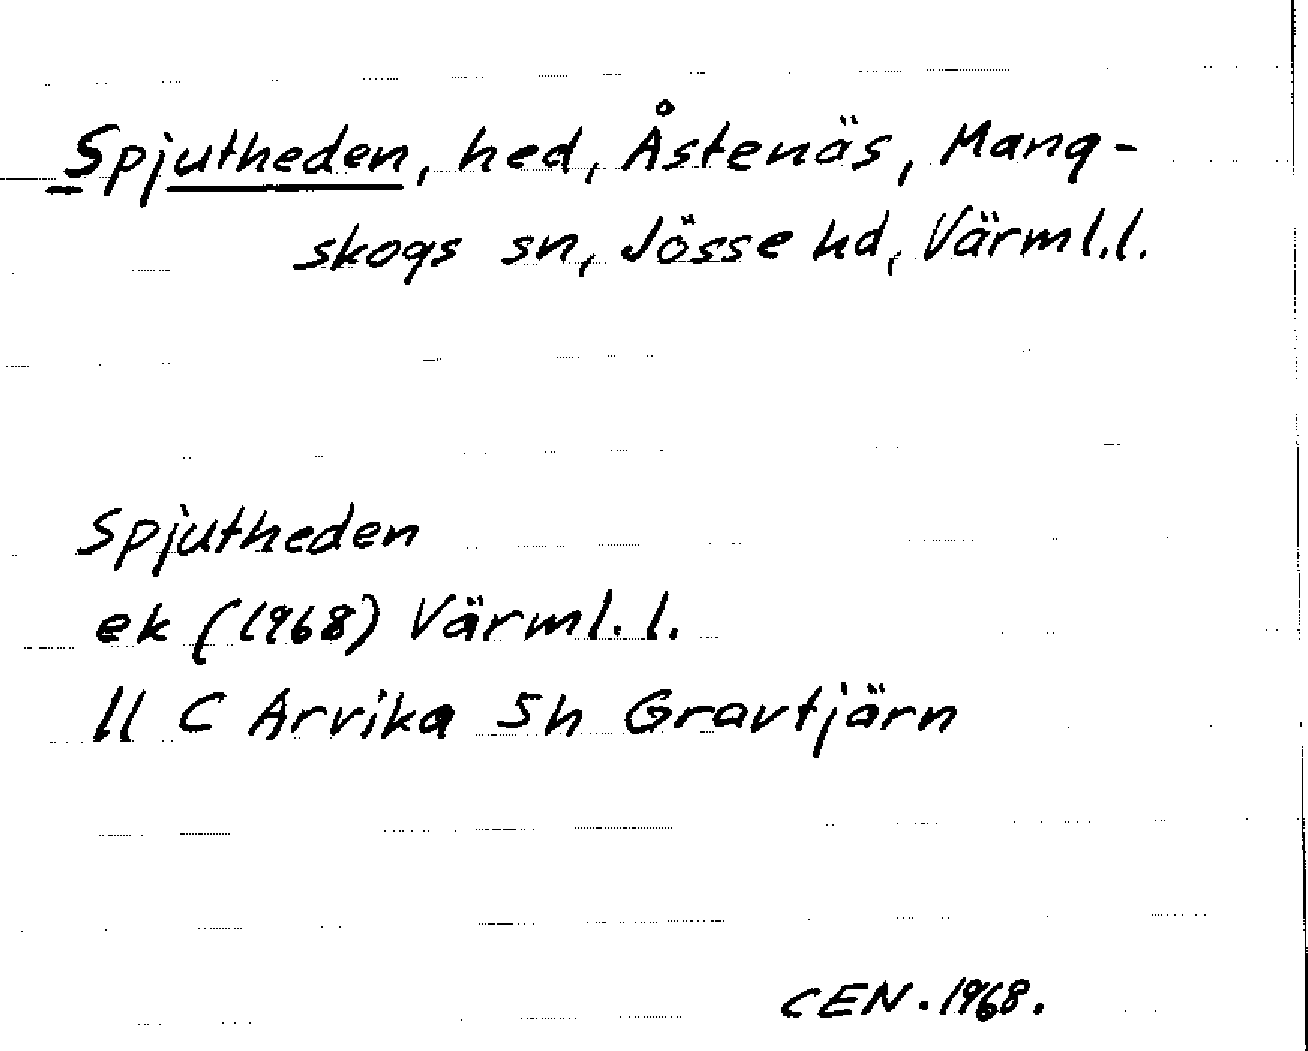 Spjutheden, hed, Åstenäs, Mang-
skogs sn, Jösse hd, Värml.l.
Spjutheden
ek (1968) Värml.l.
11 C Arvika 5h Gravtjärn
CEN. 1968.